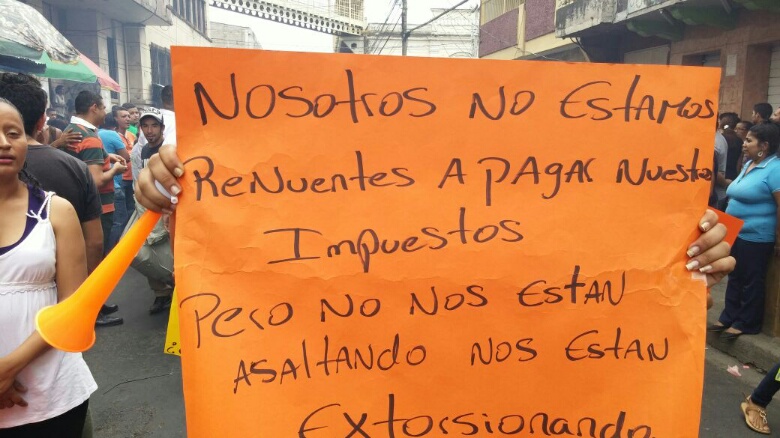 Nosotros No Estamos
Renuentes A pagar Nuestros
Impuestos
Pero No Nos Estan
Asaltando Nos Estan
Extorsionando